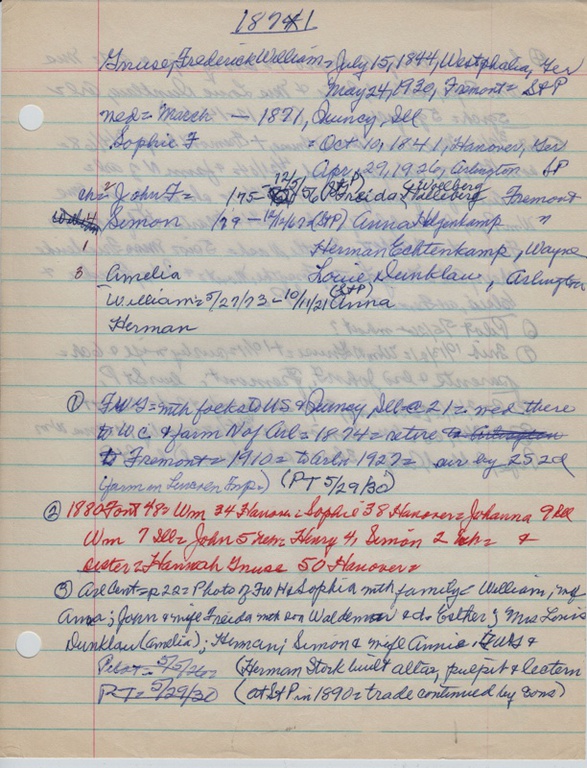 1874-1
Gnuse, Frederick William = July 15, 1844, Westphalia, Ger
May 24, 1930, Fremont = StP
med = March — 1871, Quincy, Ill
Sophie F = Oct 10, 1841, Hanover, Ger
Apr, 29, 1926, Arlington StP
ch = 2 John F = 1/75 - 12/5/56 (StP) Freida Fremont
4 Simon 1/79 - 12/12/62 (StP) Anna "
1 Herman Echtenkamp, Wayne
3 Amelia Louie Dunklau, Arlington
William = 5/27/73 - 10/11/21 (StP) Anna
Herman
① FWG = mth folks to US & Quincy Ill @ 21 = med there
to W.C. & farm N of Arl = 1874 = retire to Arlington
to Fremont = 1910 = to Arln 1927 = sur by 2S 2d
(farm on Lincoln Tnp.) (PT 5/29/30)
② 1880 Font 48 = Wm 34 Hanover = Sophie 38 Hanover = Johanna 9 Ill
Wm 7 Ill = John 5 Neb = Henry 4, Simon 2 &
sister = Hannah Gnuse 50 Hanover =
③ Arl Cent = p 22 = Photo of Fw & Sophia mth family = William, wife
Anna; John & wife Freida mth son Waldemar & d. Esther; Mrs Louis
Dunklau (Amelia); Herman; Simon & wife Annie. FWG &
Pilot = 5/5/ (Herman Stork built altar, pulpit & lectern
PT = 5/29/30 (at StP in 1890 = trade continued by sons)